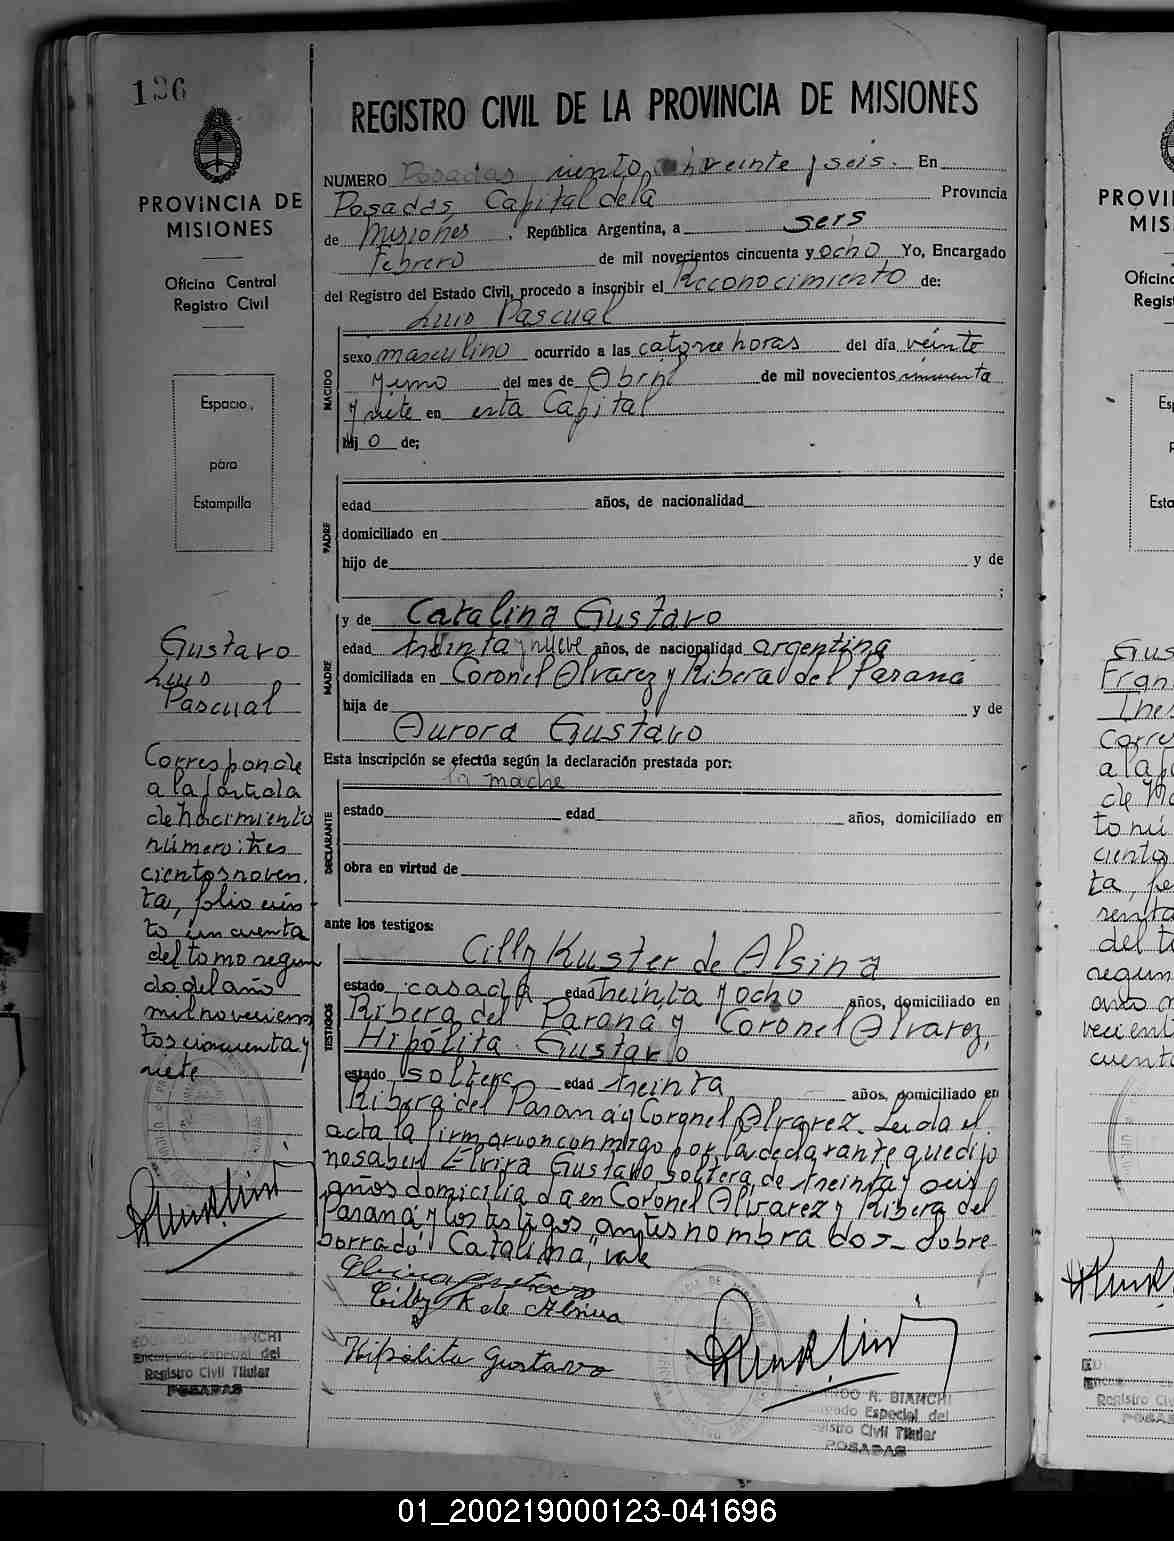 136
PROVINCIA DE
MISIONES
Oficina Central
Registro Civil
Espacio
para
Estampilla
Gustavo
Luis
Pascual
Corresponde
a la partida
de nacimiento
número: tres
cientos noven
ta, folio cien
to cincuenta
del tomo segun
do del año
mil novecien
tos cincuenta y
siete
Encargado Especial del
Registro Civil Titular
POSADAS
REGISTRO CIVIL DE LA PROVINCIA DE MISIONES
NUMERO Posadas ciento treinte y seis. En
Posadas, Capital de la Provincia
de Misiones, República Argentina, a seis
Febrero de mil novecientos cincuenta y ocho Yo, Encargado
del Registro del Estado Civil, procedo a inscribir el Reconocimiento de:
Luis Pascual
NACIDO
sexo masculino ocurrido a las catorce horas del día veinte
y uno del mes de Abril de mil novecientos cincuenta
y siete en esta Capital
hijo de;
PADRE
edad años, de nacionalidad
domiciliado en
hijo de y de
;
MADRE
y de Catalina Gustavo
edad treinta y nueve años, de nacionalidad argentina
domiciliada en Coronel Alvarez y Ribera del Parana
hija de y de
Aurora Gustavo
Esta inscripción se efectúa según la declaración prestada por:
la madre
DECLARANTE
estado edad años, domiciliado en
obra en virtud de
ante los testigos:
TESTIGOS
Cilly Kuster de Alsina
estado casada edad treinta y ocho años, domiciliado en
Ribera del Paraná y Coronel Alvarez,
Hipólita Gustavo
estado soltera edad treinta años, domiciliado en
Ribera del Paraná y Coronel Alvarez. Leida el
acta la firmaron conmigo por la declarante que dijo
no saber Elvira Gustavo, soltera, de treinta y seis
años domiciliada en Coronel Alvarez y Ribera del
Paraná y los testigos antes nombrados - sobre
borrado "Catalina", vale
Elvira Gustavo
Cilly K de Alsina
Hipólita Gustavo
R. BIANCHI
Especial del
Registro Civil Titular
POSADAS
PROVI
MIS
Oficina
Regis
Gus
Fran
Corre
a la
de
to nú
ciento
ta,
del to
segun
cuenta
Registro Ci
01_200219000123-041696